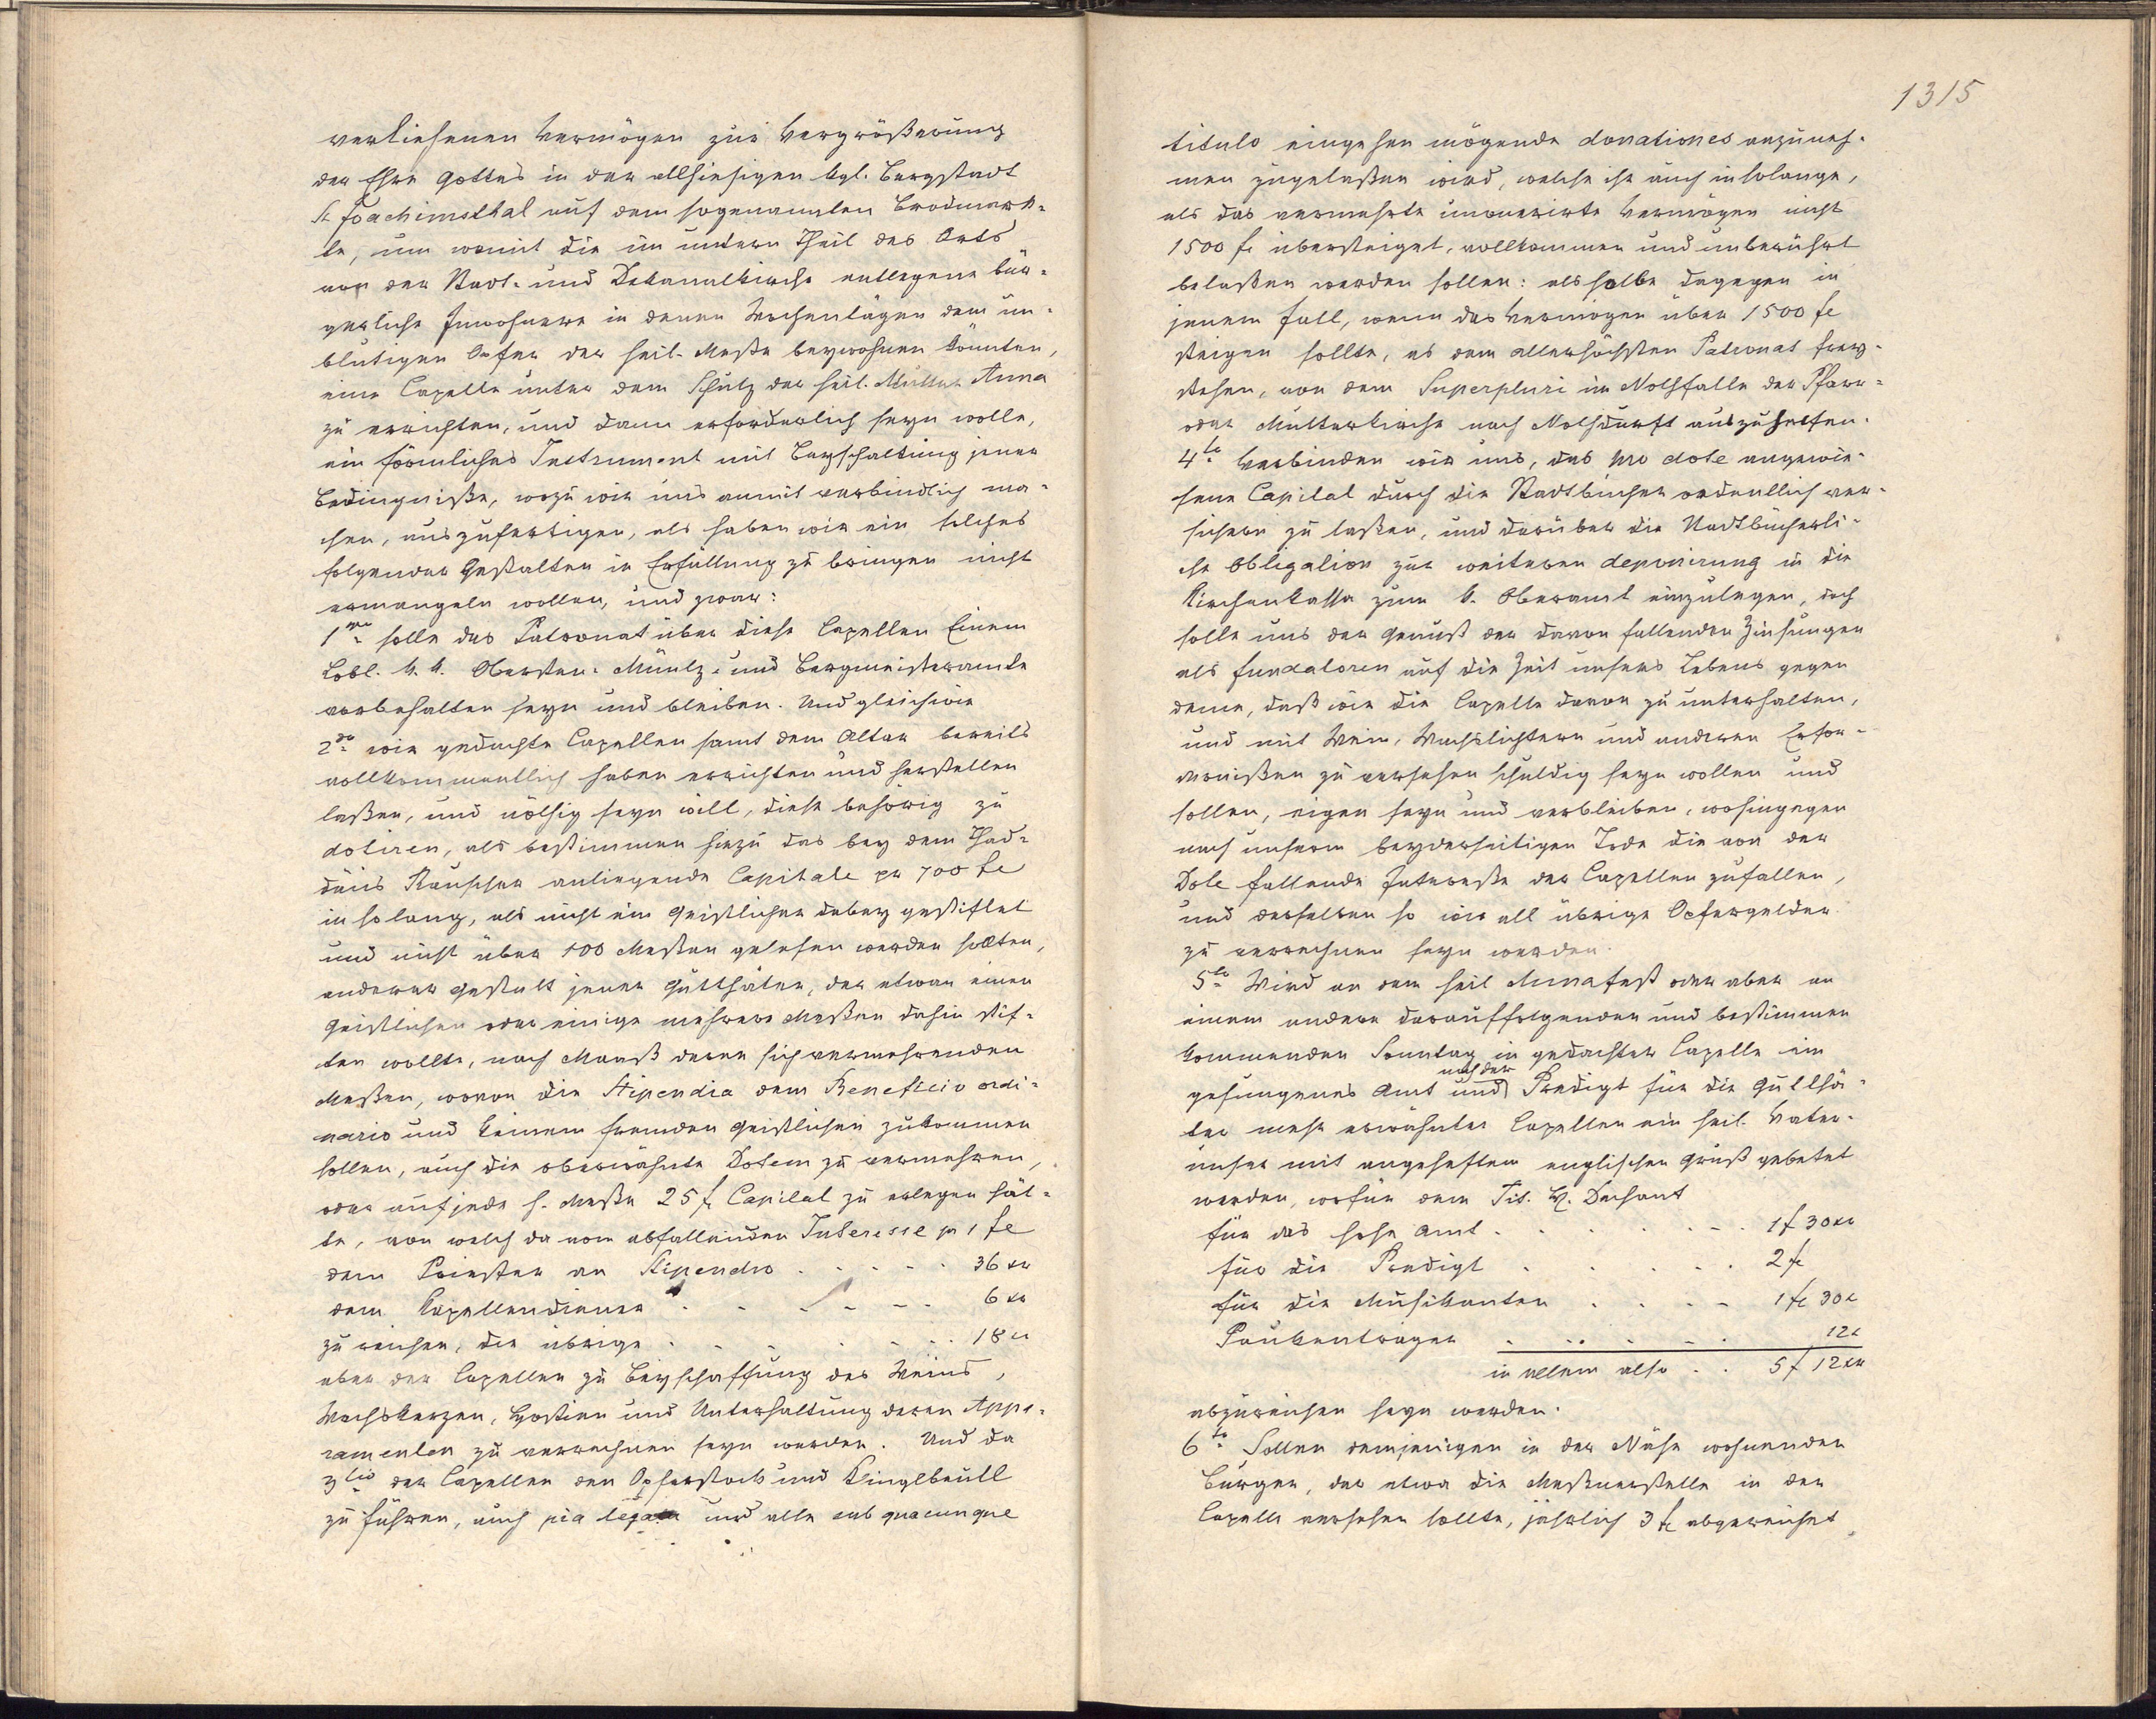 verliehenen Vermögen zur Vergrößerung
der Ehre Gottes in der allhiesigen kgl. Bergstadt
St Joachimsthal auf dem sogenannten Brodmark-
te, um womit die im untern Theil des Orts
von der Stadt- und Dekanalkirche entlegene bür-
gerliche Inwohnere in denen Wochentägen dem un-
blutigen Opfer der heil. Messe beywohnen könnten,
eine Capelle unter dem Schutz der heil. Mutter Anna
zu errichten, und dann erforderlich seyn wolle,
ein förmliches Instrument mit Beyschaltung jener
Bedingniße, wozu wir uns anmit verbindlich ma-
chen, auszufertigen, als haben wir ein solches
folgender Gestalten in Erfüllung zu bringen nicht
ermangeln wollen, und zwar:
1mo solle das Patronat über diese Capellen Einem
Löbl. k. k. Obersten- Müntz- und Bergmeisteramte
vorbehalten seyn und bleiben. Und gleichwie
2do wir gedachte Capellen samt dem Altar bereits
vollkommentlich haben errichten und herstellen
laßen, und nöthig seyn will, diese behörig zu
dotiren, als bestimmen hiezu das bey dem Thad-
däus Rauscher anliegende Capitale pr 700 fl
in so lang, als nicht ein Geistlicher dabey gestiftet
und nicht über 100 Meßen gelesen werden sollten,
anderer Gestalt jener Gutthäter, der etwan einen
Geistlichen oder einige mehrere Meßen dahin stif-
ten wollte, nach Maaß deren sich vermehrenden
Meßen, wovon die Stipendia dem Beneficio ordi-
nario und keinem fremden Geistlichen zukommen
sollen, auch die oberwähnte Dotem zu vermehren,
oder auf jede h. Meße 25 f. Capital zu erlegen hät-
te, von welch da vom abfallenden Interesse pr 1 fl
dem Priester an Stipendio . . . . . 36 xr
dem Kapellendiener . . . . . . 6 xr
zu reichen, die übrige . . . . . . 18 xr
aber der Capellen zu Beyschaffung des Weins,
Wachskerzen, Hostien und Unterhaltung deren Appa-
ramenten zu verrechnen seyn werden. Und da
3tio der Capellen den Opferstock und Klinglbeutl
zu führen, auch pia legata und alle sub quacunque
1315
titulo eingehen mögende donationes anzuneh-
men zugelaßen wird, welche ihr auch insolange,
als das vermehrte unonerirte Vermögen nicht
1500 fl übersteiget, vollkommen und unberührt
belaßen werden sollen: als solle dagegen in
jenem Fall, wenn das Vermögen über 1500 fl
steigen sollte, es dem allerhöchsten Patronat frey-
stehen, von dem Superpluri im Nothfalle der Pfarr-
oder Mutterkirche nach Nothdurft auszuhelfen.
4to Verbinden wir uns, das pro dote angewie-
sene Capital durch die Stadtbücher ordentlich ver-
sichern zu laßen, und darüber die Stadtbücherli-
che Obligation zur weiteren deponirung in die
Kirchenkassa zum k. Oberamt einzulegen, doch
solle uns der Genuß der davon fallenden Zinsungen
als fundatoren auf die Zeit unsers Lebens gegen
deme, daß wir die Capelle davon zu unterhalten,
und mit Wein, Wachslichtern und anderen Erfor-
dernißen zu versehen schuldig seyn wollen und
sollen, eigen seyn und verbleiben, wohingegen
nach unserm beyderseitigen Tode die von der
Dote fallende Interesse der Capellen zufallen,
und derselben so wie all übrige Opfergelder
zu verrechnen seyn werden.
5to Wird an dem heil Annafest oder aber an
einem andern darauffolgenden und bestimmen
kommenden Sonntag in gedachter Capelle ein
nach der
gesungenes Amt und Predigt für die Gutthä-
ter mehr erwähnter Capellen ein heil. Vater-
unser mit angeheften englischen Gruß gebetet
werden, wofür dem Tit. H. Dechant
für das hohe Amt . . . . . . . 1 f 30 xr
für die Predigt . . . . . 2 fl
für die Musikanten . . . . 1 fl 30 x
Paukentrager . . . . . . 12 x
in allem also . . 5 f 12 xr
abzureichen seyn werden.
6to Sollen demjenigen in der Nähe wohnenden
Burger, der etwa die Meßnerstelle in der
Capelle versehen sollte, jährlich 3 fl abgereichet